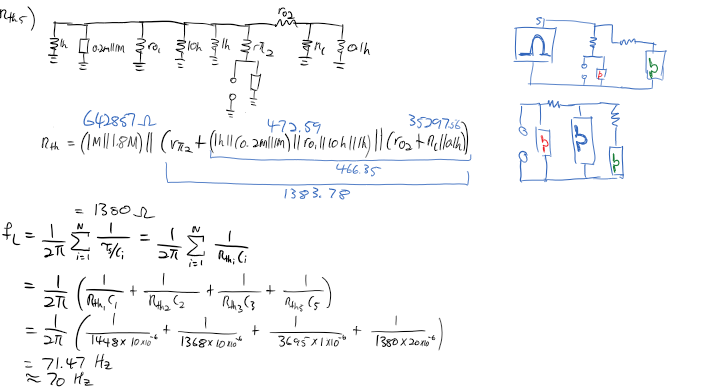 Rths)
ro2
1k
0.2m||1m
ro1
10k
1k
rπ2
rL
0.1k
S1
642857 Ω
472.59
35297.56
Rth = (1M||1.8M) || (rπ2 + (1k||(0.2m||1m)||ro1||10k||1k) || (ro2 + rL||0.1k))
466.35
1383.78
= 1380 Ω
fL = 1/2π N∑i=1 1/τi/Ci = 1/2π N∑i=1 1/RthiCi
= 1/2π (1/Rth1C1 + 1/Rth2C2 + 1/Rth3C3 + 1/Rth5C5)
= 1/2π (1/1448×10×10⁻⁶ + 1/1368×10×10⁻⁶ + 1/3695×1×10⁻⁶ + 1/1380×20×10⁻⁶)
= 71.47 Hz
≈ 70 Hz